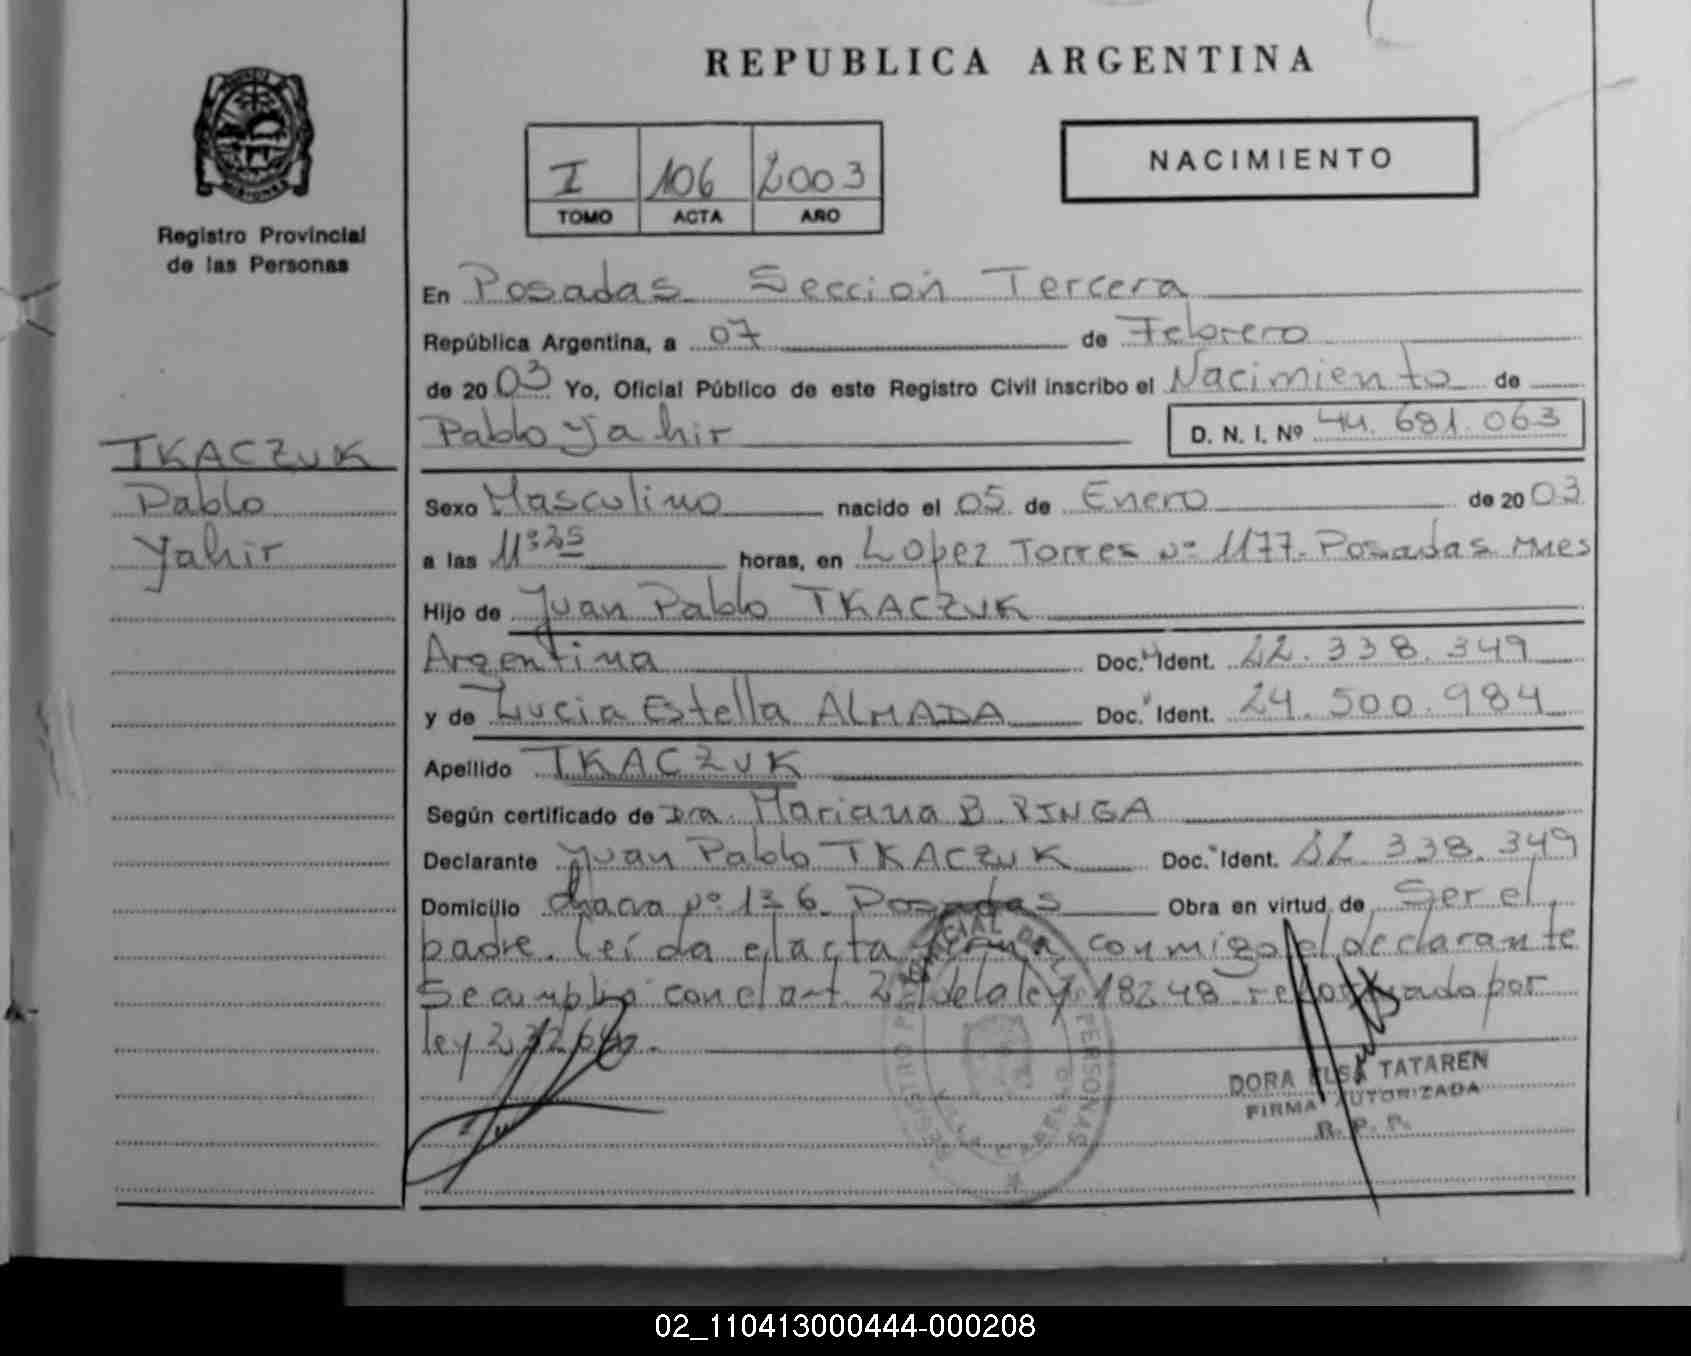 REPUBLICA ARGENTINA
I 106 2003
TOMO ACTA AÑO
NACIMIENTO
MISIONES
Registro Provincial
de las Personas
En Posadas Sección Tercera
República Argentina, a 07 de Febrero
de 2003 Yo, Oficial Público de este Registro Civil inscribo el Nacimiento de
Pablo Yahir D. N. I. Nº 44.681.063
TKACZUK
Pablo
Yahir
Sexo Masculino nacido el 05 de Enero de 2003
a las 11:25 horas, en Lopez Torres Nº 1177. Posadas Mnes
Hijo de Juan Pablo TKACZUK
Argentina Doc. Ident. 22.338.349
y de Lucia Estella ALMADA Doc. Ident. 24.500.984
Apellido TKACZUK
Según certificado de Dra. Mariana B. PINGA
Declarante Juan Pablo TKACZUK Doc. Ident. 22.338.349
Domicilio chacra Nº 136. Posadas Obra en virtud de Ser el
padre. Leída el acta firma conmigo el declarante
Se cumplió con el art 2 de la ley 18248 reformado por
ley
DORA ELSA TATAREN
FIRMA AUTORIZADA
R. P. P.
02_110413000444-000208